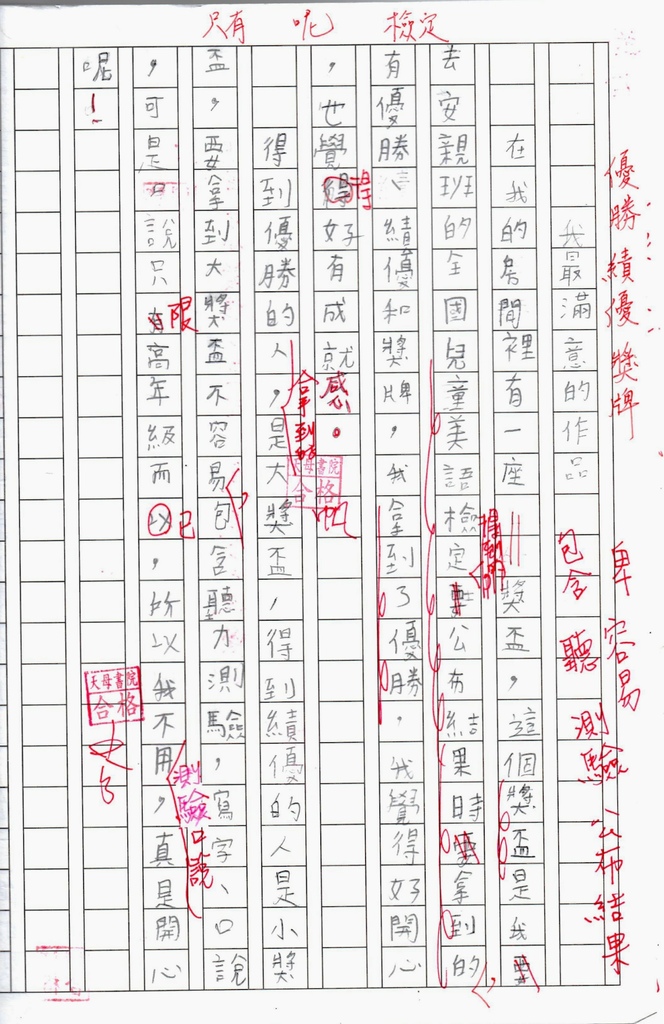 只有 呢 檢定
優勝績優獎牌
卑 容易 公布結果
包含 聽 測驗
我最滿意的作品
在我的房間裡有一座獎盃,這個獎盃是我
得到的
去安親班的全國兒童美語檢定公布結果時拿到的
有優勝、績優和獎牌,我拿到了優勝,我覺得好開心
,也覺得好有成就感。
得
呢
得到優勝的人,是大獎盃,得到績優的人是小獎
拿到的
天母書院
合格
盃,要拿到大獎盃不容易包含聽力測驗,寫字、口說
,可是口說只有高年級而以,所以我不用,真是開心
限
已
測驗口說
呢!
天母書院
合格